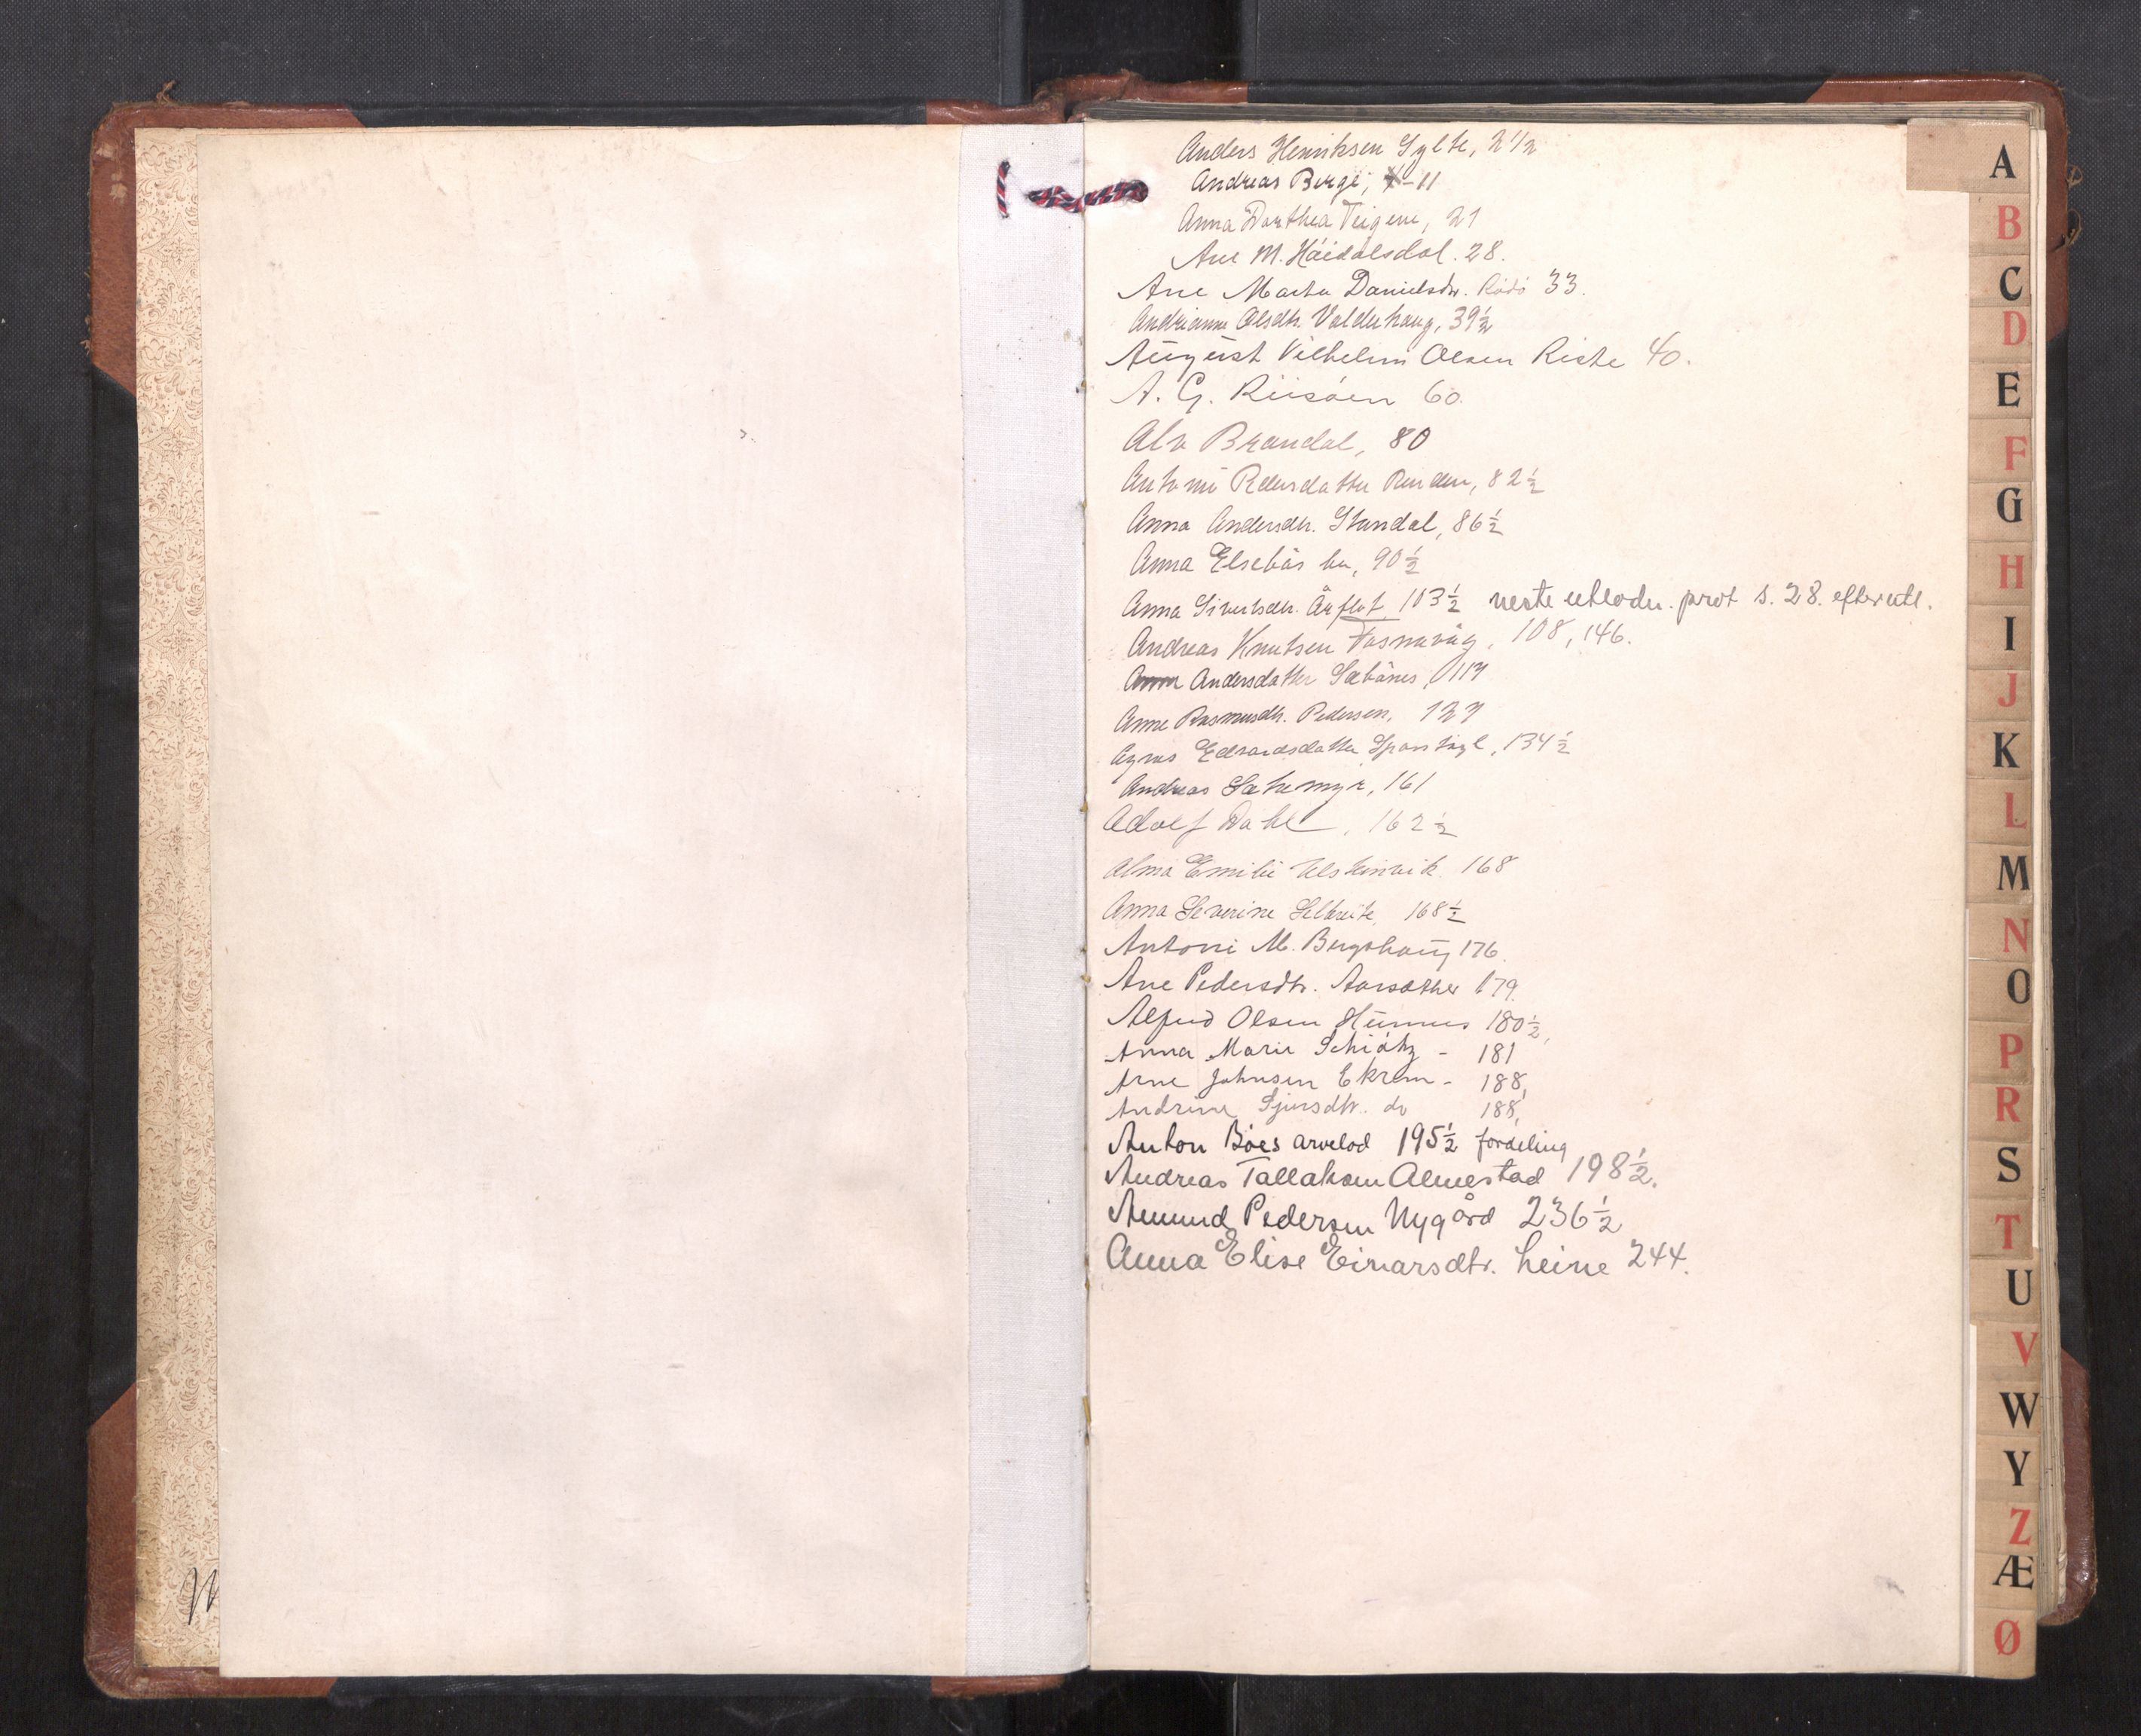 Anders Henriksen Sylte, 2 1/2
Andreas Berge, 11
Anna Dorthea Teigene, 21
Ane M. Háidalsdal. 28.
Ane Marta Danielsdtr. 33.
Andrianne Olsdtr. Valderhaug, 39 1/2
August Vilhelm Olsen Riste 40.
A. G. Riisöen 60.
Alv Brandal, 80
Antoni Pedersdatter 82 1/2
Anna Andersdtr. Standal, 86 1/2
Anna Elsebås bu, 90 1/2
Anna Sivertsdtr. Årflot, 103 1/2 neste utlodn. prot s. 28. efterutl.
Andreas Knutsen Fosnavåg, 108, 146.
Andersdatter Sæbönes, 117
Anne Rasmusdtr. Pedersen, 127
Agnes Edvardsdatter 134 1/2
Andreas Sætremyr, 161
Adolf Dahl, 162 1/2
Alma Emilie Ulsteinvik 168
Anna Severine Selbreite 168 1/2
Antoni M. Bergshaug 176.
Ane Pedersdtr. Aarsæther 179.
Alfred Olsen Hunnes 180 1/2,
Anna Marie Schiötz - 181
Arne Johnsen Ekrem - 188,
Andrine Sjursdtr. do 188,
Anton Böes arvelod 195 1/2 fordeling
Andreas Tallaksen Almestad 198 1/2.
Amund Pedersen Nygård 236 1/2
Anna Elise Einarsdtr. Leine 244.
A
B
C
D
E
F
G
H
I
J
K
L
M
N
O
P
R
S
T
U
V
W
Y
Z
Æ
Ø